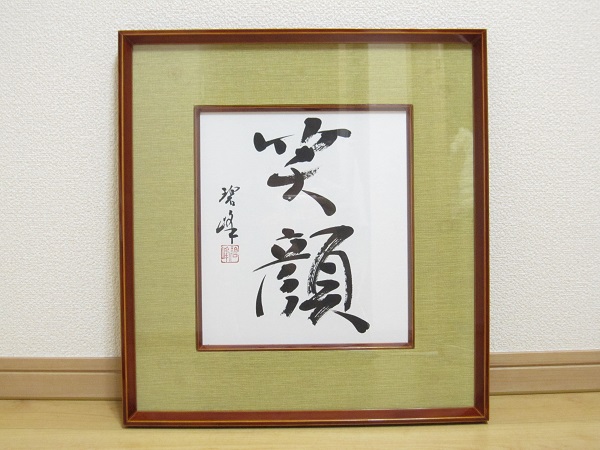 笑顔
碧峰